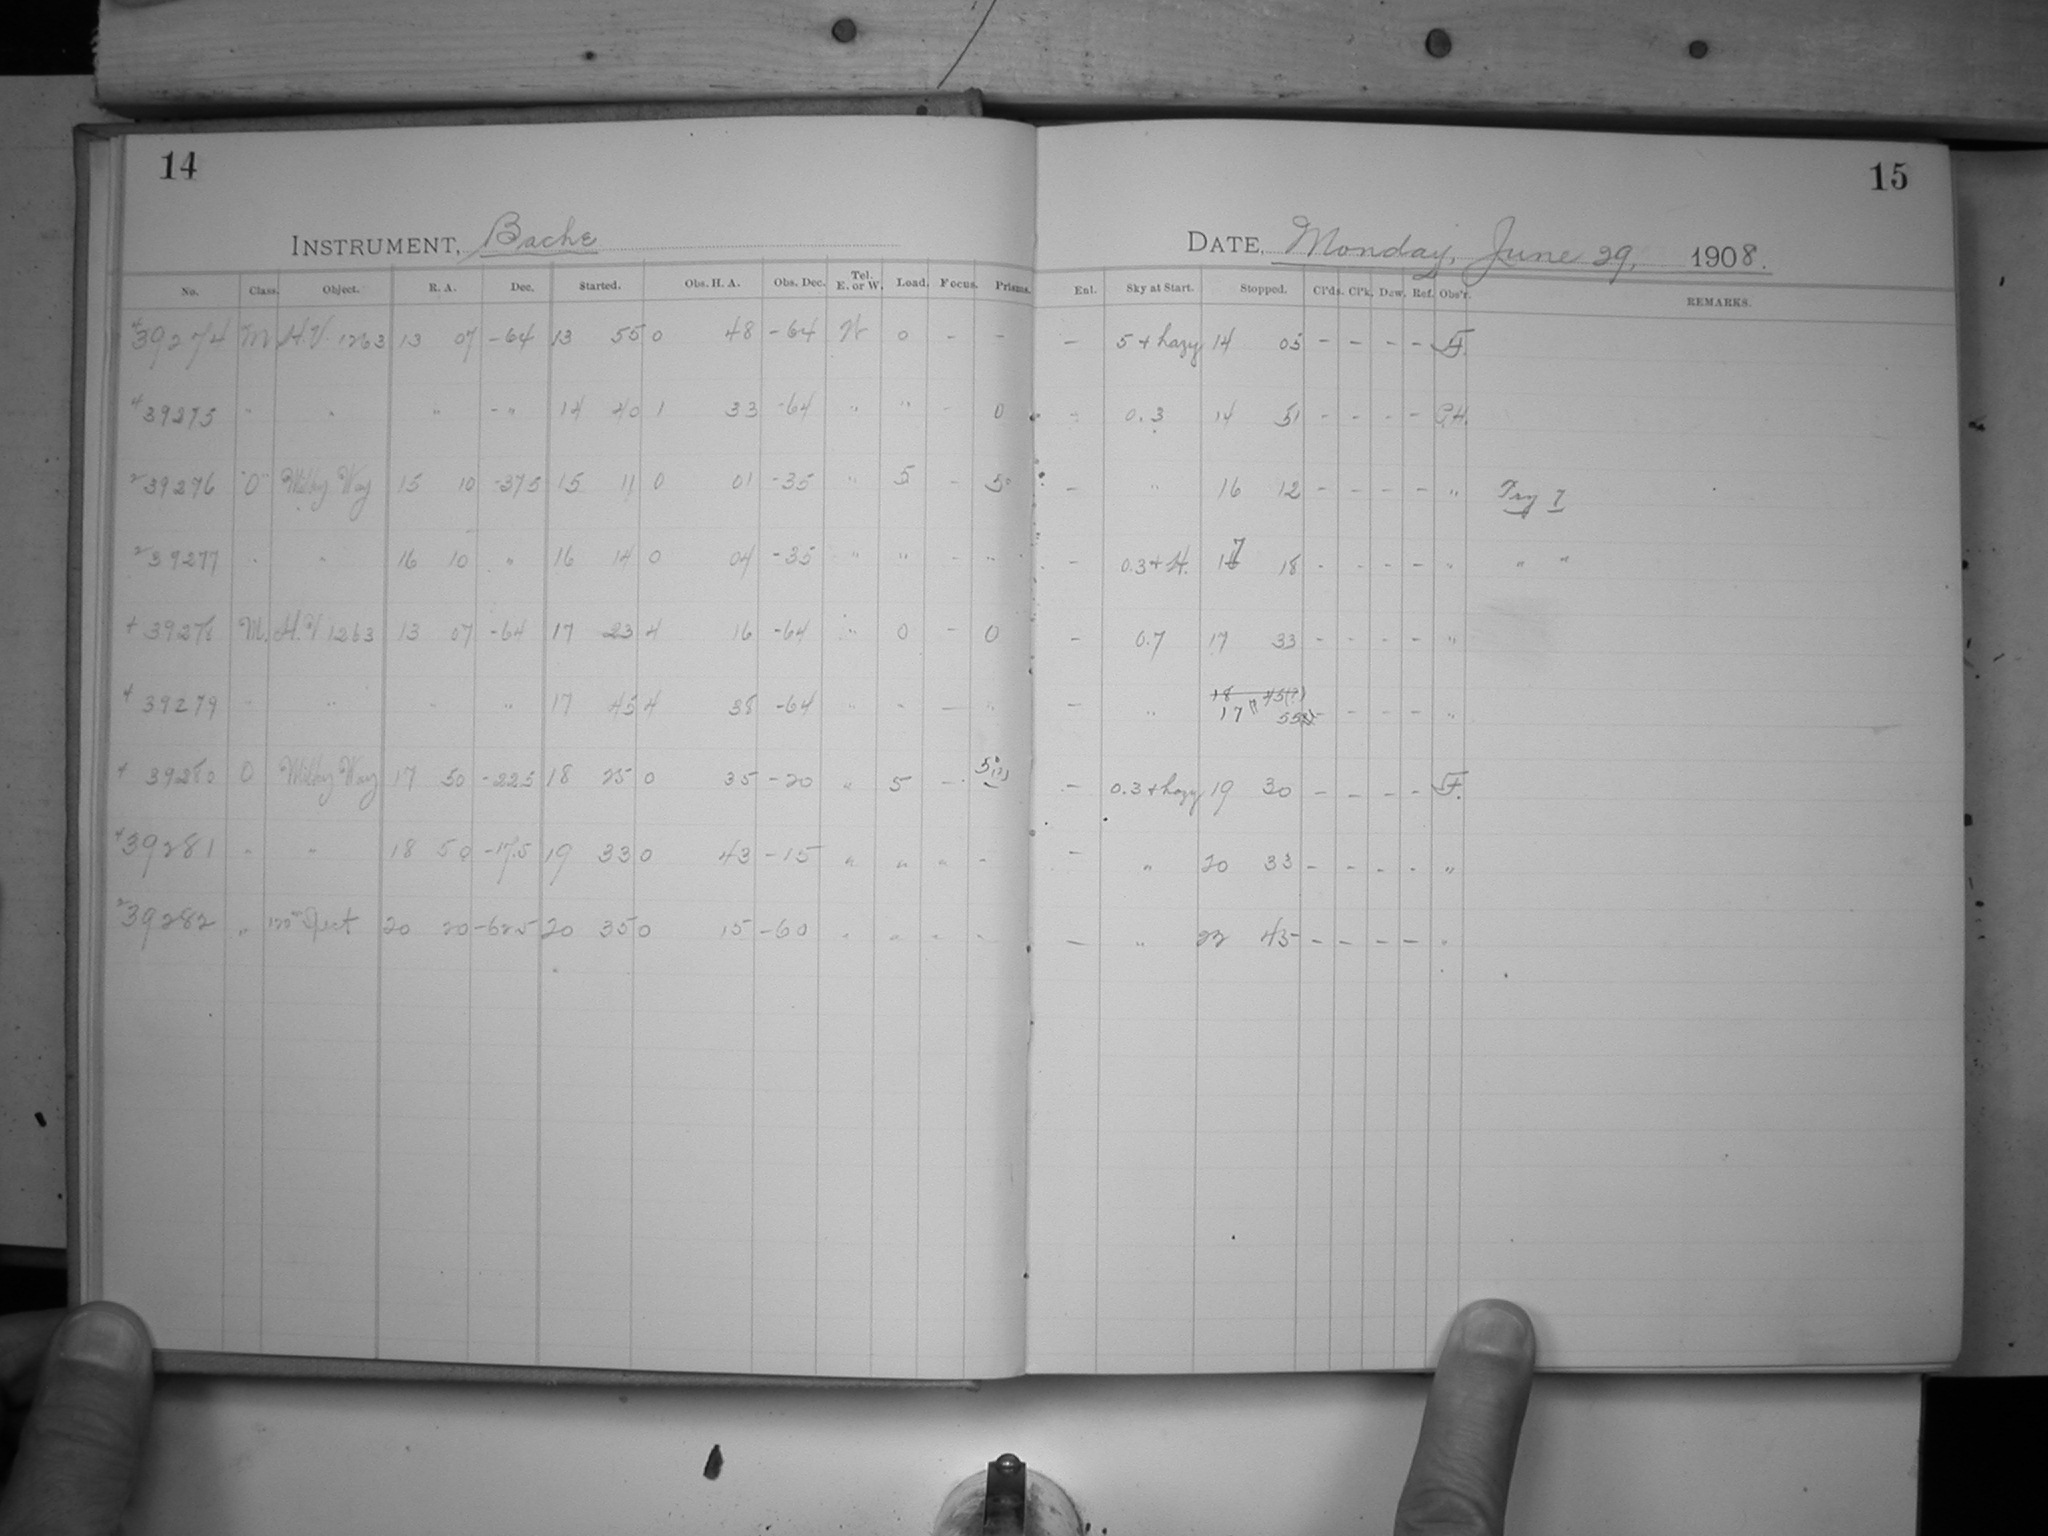 14
15
INSTRUMENT, Bache
DATE, Monday, June 29, 1908.
No. Class. Object. R. A. Dec. Started. Obs. H. A. Obs. Dec. Tel. E. or W. Load. Focus. Prisms. Enl. Sky at Start. Stopped. Cl'ds. Cl'k. Dew. Ref. Obs'r. REMARKS.
4 39274 M H.V. 1263 13 07 -64 13 55 0 48 -64 W 0 - - - 5 + hazy 14 05 - - - - F.
4 39275 " " " - " 14 40 1 33 -64 " " - 0 " 0.3 14 51 - - - -
2 39276 "O" Milky Way 15 10 -37.5 15 11 0 01 -35 " 5 - 5° - " 16 12 - - - - " Try 7
2 39277 " " 16 10 " 16 14 0 04 -35 " " - " - 0.3 + H. 17 18 - - - - " " "
4 39278 M. H.V 1263 13 07 -64 17 23 4 16 -64 " 0 - 0 - 0.7 17 33 - - - - "
4 39279 " " " " 17 45 4 38 -64 " " - " - " 18 45(?) 17 55 - - - - "
4 39280 O Milky Way 17 50 -22.5 18 25 0 35 -20 " 5 - 5°(?) - 0.3 + hazy 19 30 - - - - F.
4 39281 " " 18 50 -17.5 19 33 0 43 -15 " " " - - " 20 33 - - - - "
2 39282 " Spect 20 20 -62.5 20 35 0 15 -60 " " " " - " 22 45 - - - - "